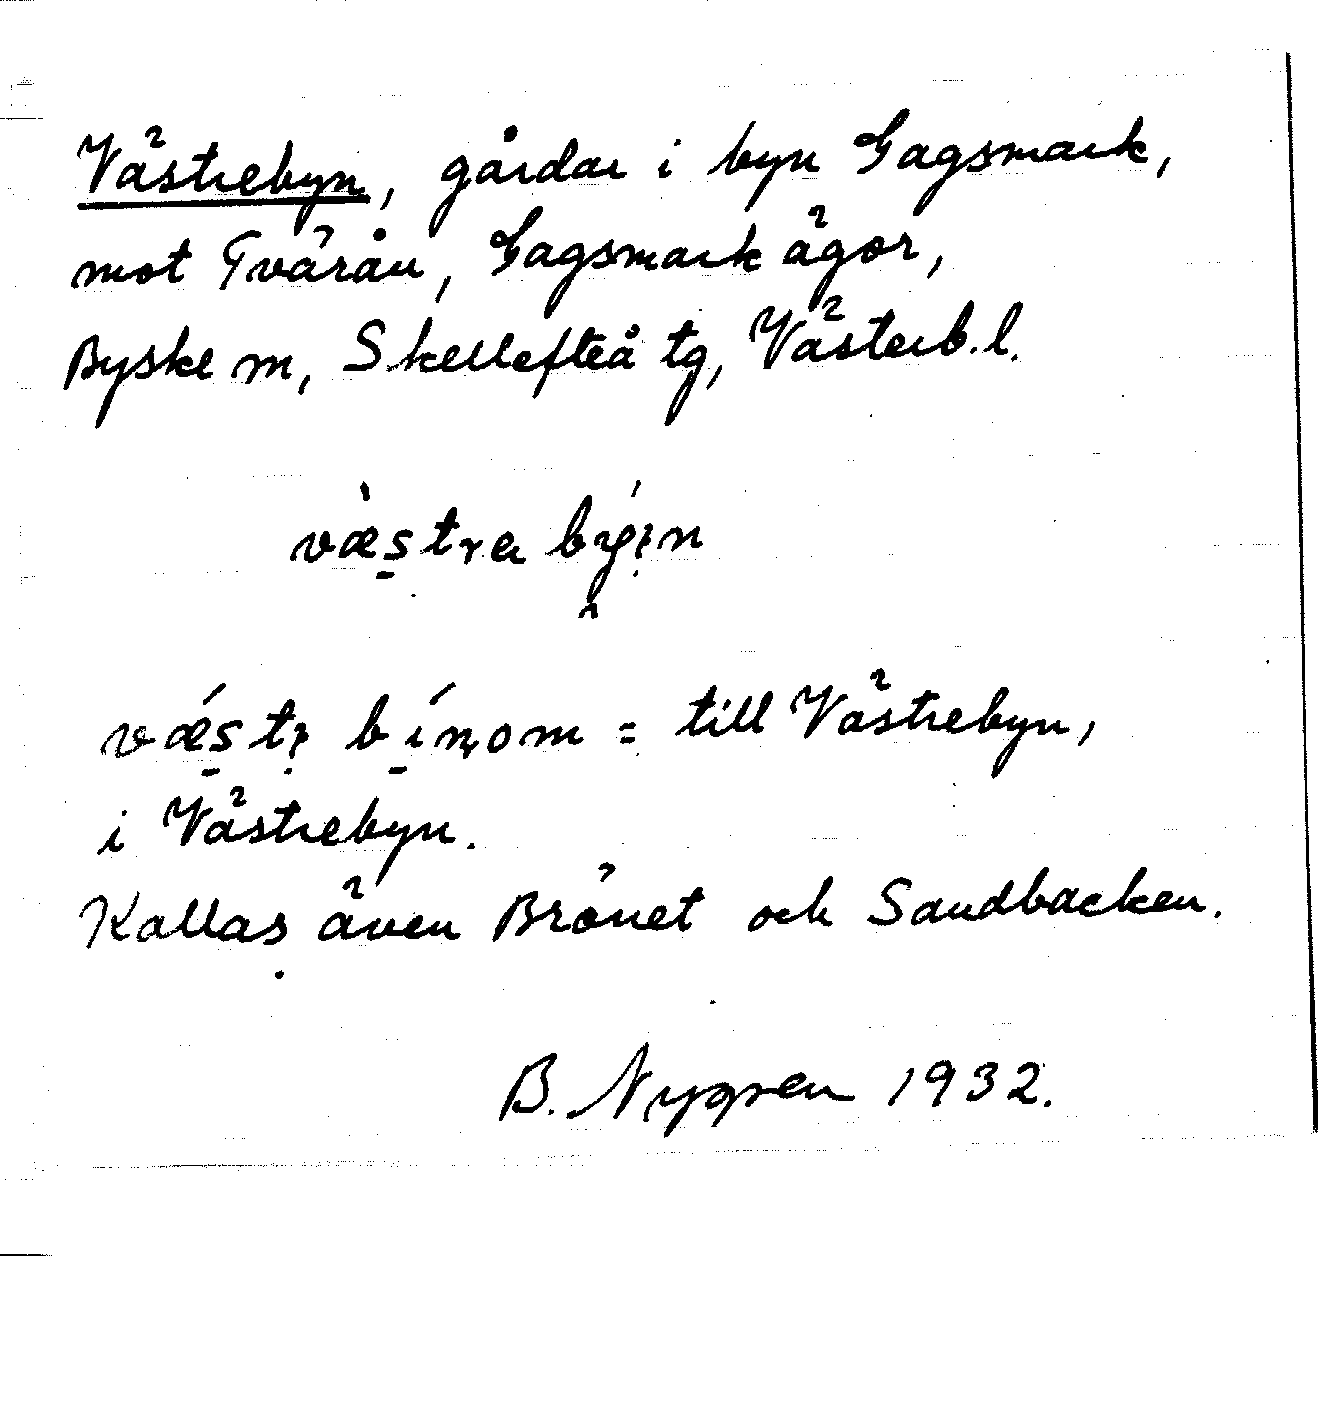 Västrebyn, gårdar i byn Gagsmark,
mot Tvärån, Gagsmark ägor,
Byske m, Skellefteå tg, Västerb.l.
væ̀stra býin
vǽstı bínom = till Västrebyn,
i Västrebyn.
Kallas även Brönet och Sandbacken.
B. Nygren 1932.